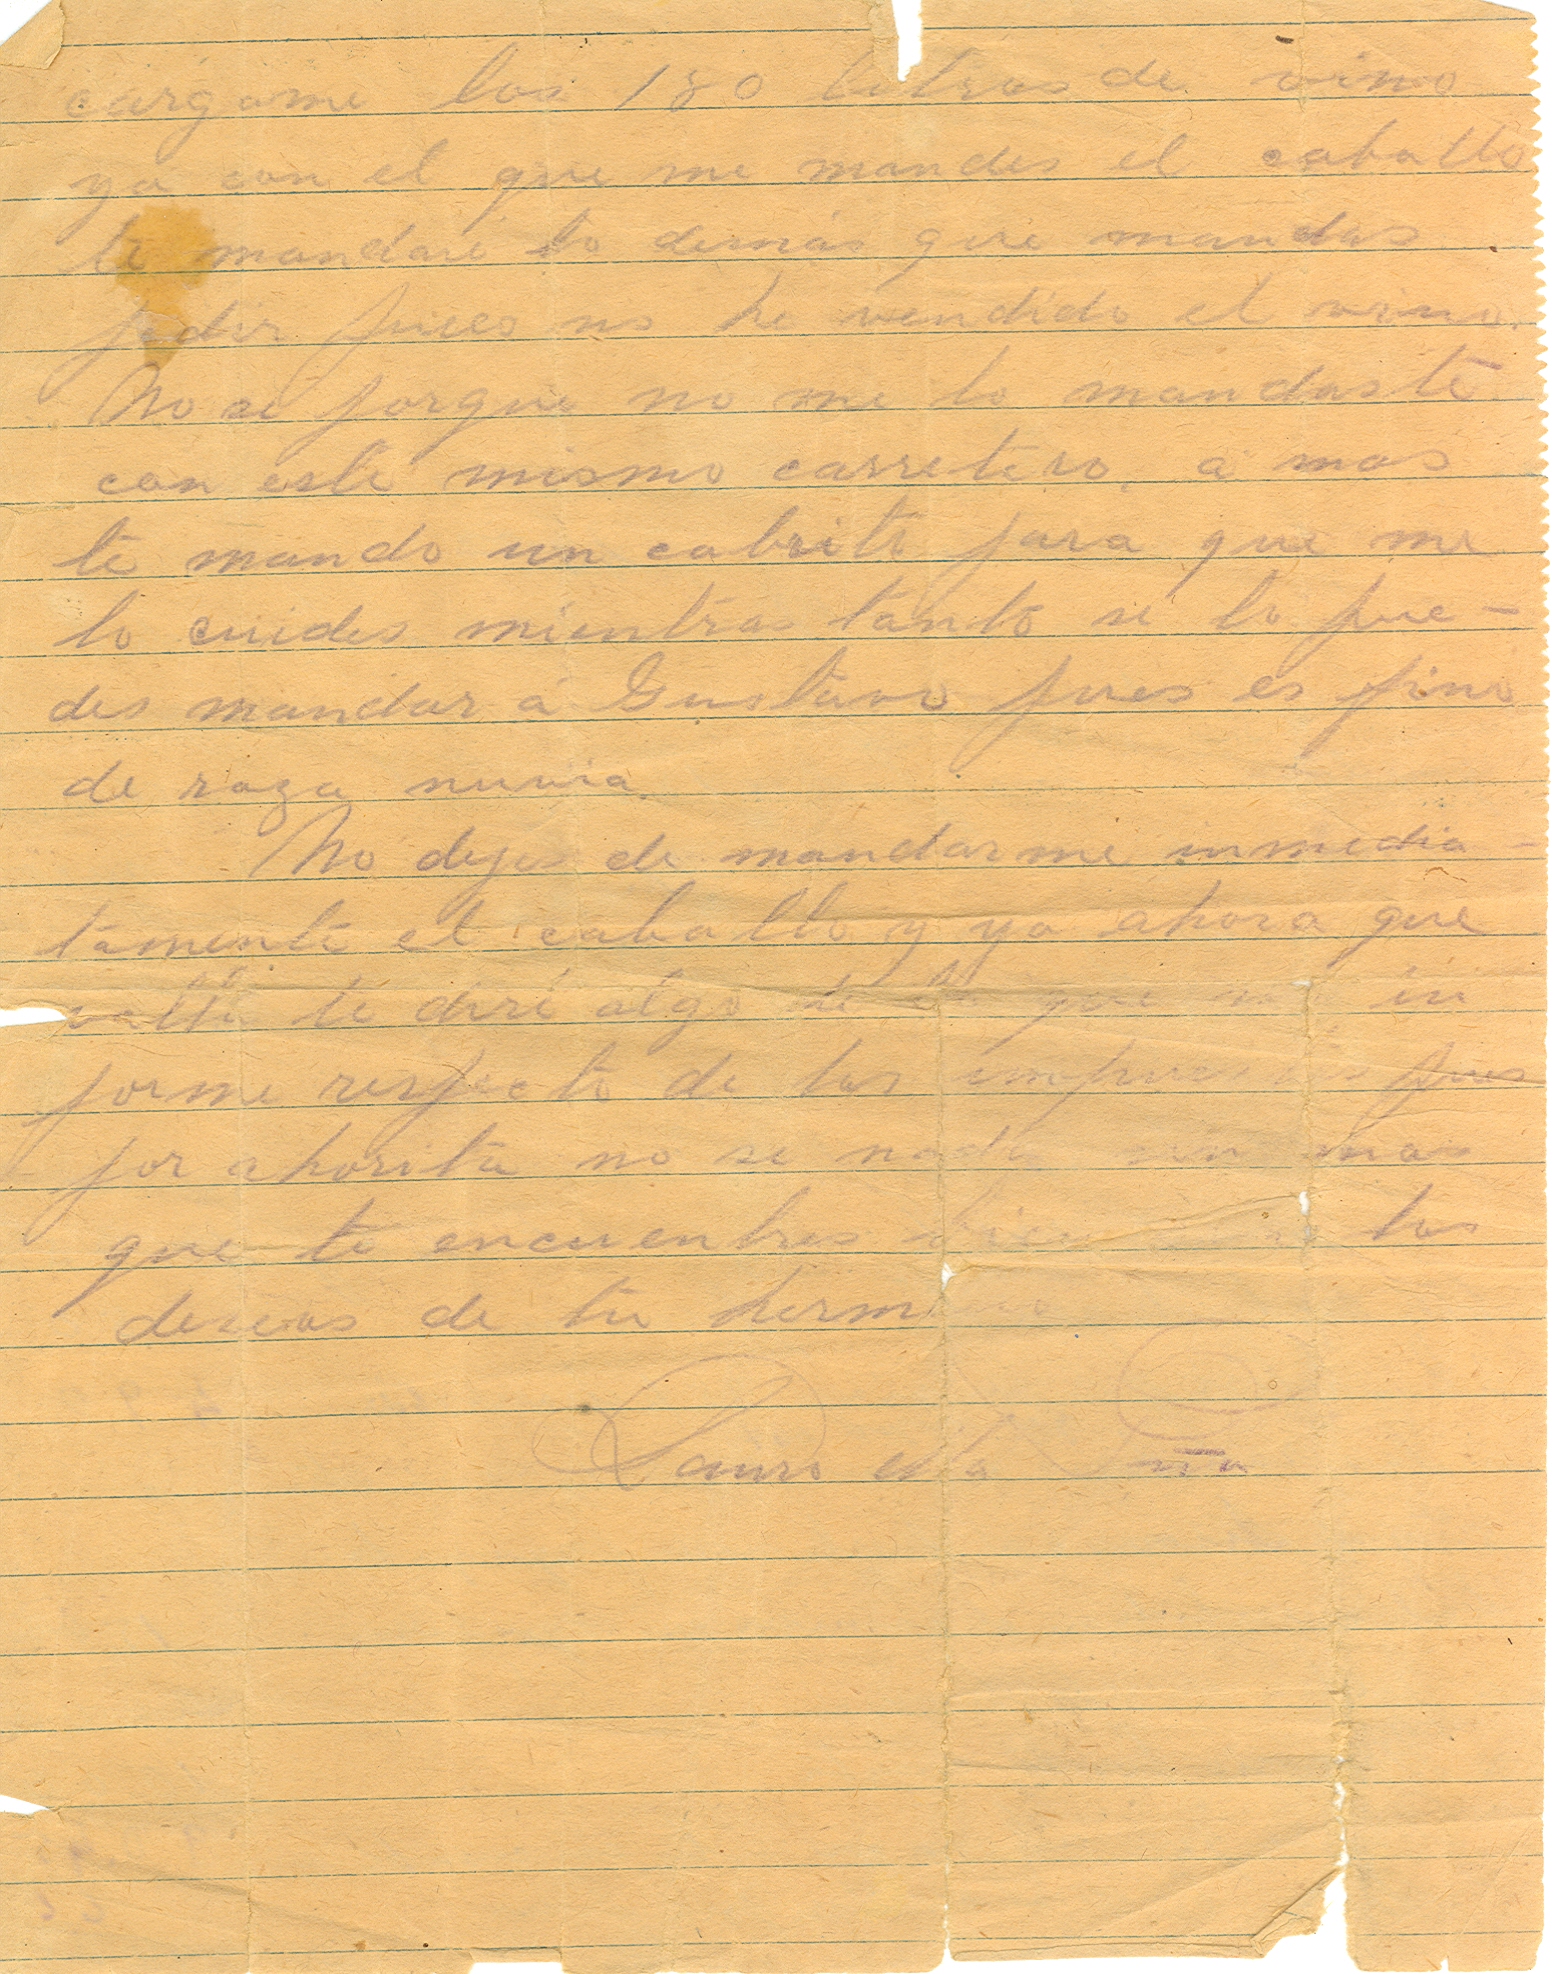 cargame los 180 litros de vino
ya con el que me mandes el caballo
te mandaré lo demás que mandas
pedir pues no he vendido el vino.
No se porque no me lo mandaste
con este mismo carretero, a mas
te mando un cabrito para que me
lo cuides mientras tanto se lo pue-
des mandar á Gustavo pues es fino
de raza nuvia.
No dejes de mandarme inmedia-
tamente el caballo y yo ahora que
te diré algo de lo que me in
forme respecto de los impuestos pues
por ahorita no se nada sin mas
que te encuentres bien los
deseos de tu hermano
Lauro